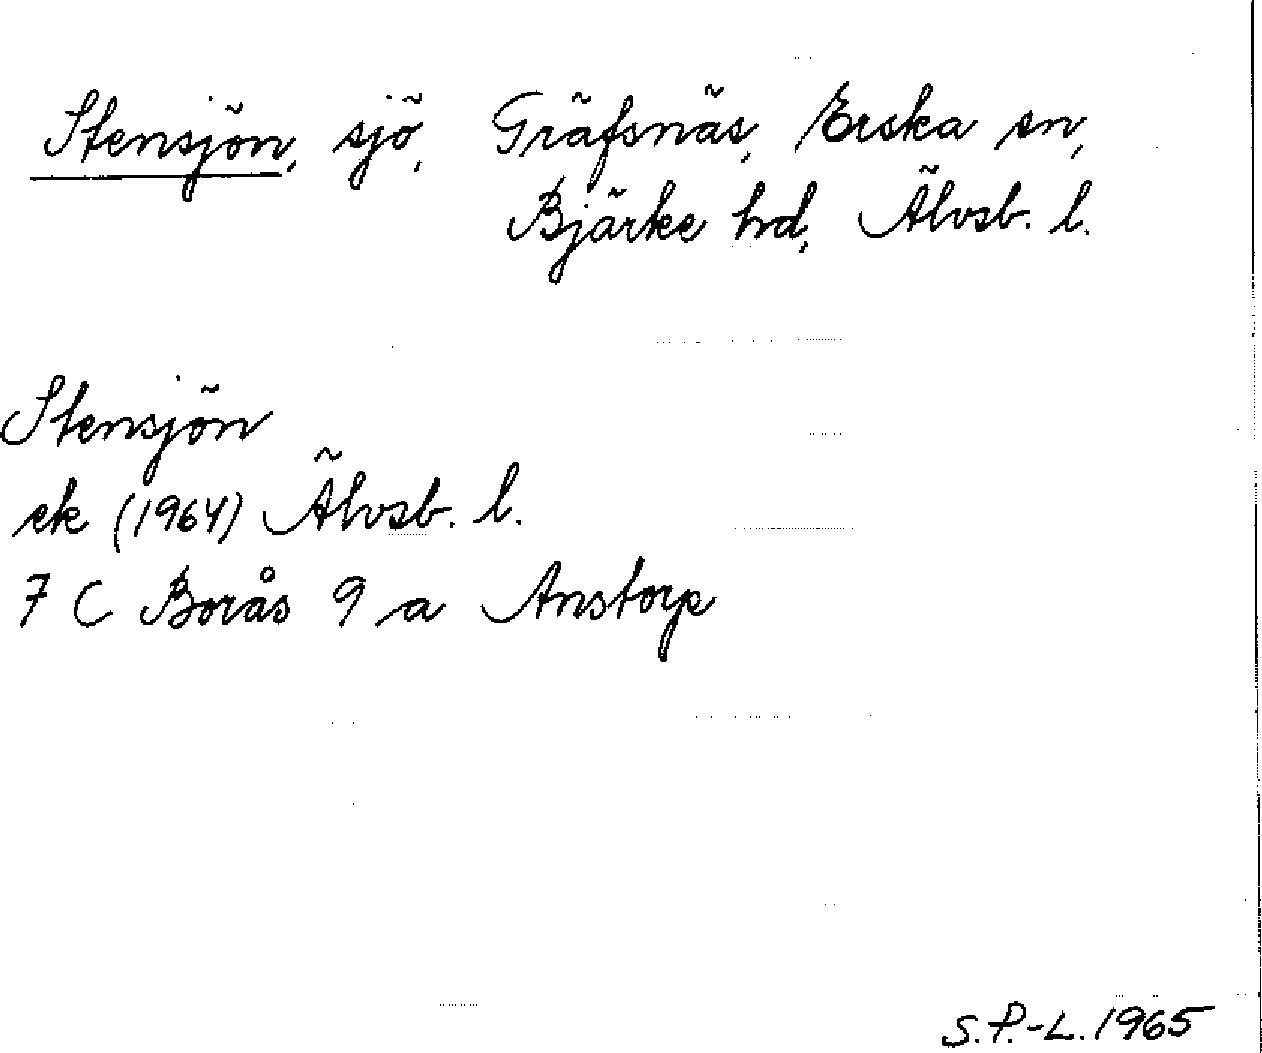 Stensjön, sjö, Gräfsnäs, Erska sn,
Bjärke hd, Älvsb. l.
Stensjön
ek (1964) Älvsb. l.
7 C Borås 9 a Anstorp
S.P.-L. 1965